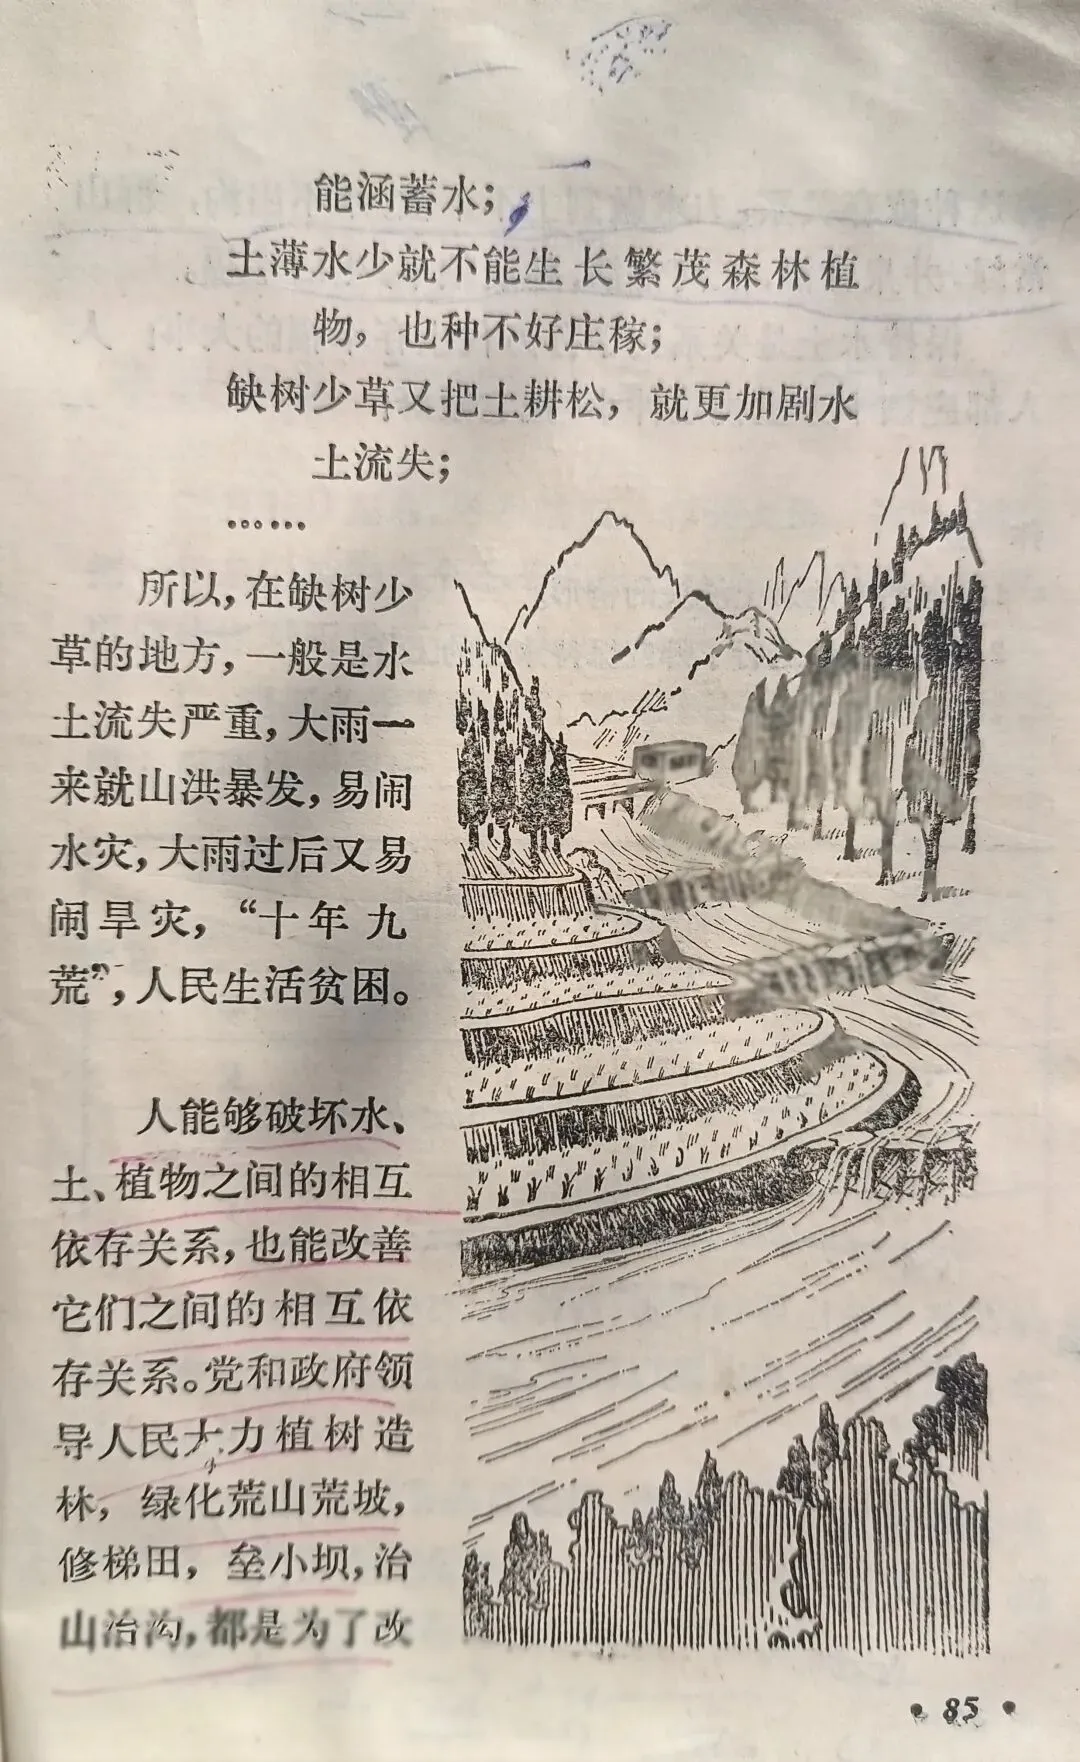 能涵蓄水；
土薄水少就不能生长繁茂森林植
物，也种不好庄稼；
缺树少草又把土耕松，就更加剧水
土流失；
……
所以，在缺树少
草的地方，一般是水
土流失严重，大雨一
来就山洪暴发，易闹
水灾，大雨过后又易
闹旱灾，“十年九
荒”，人民生活贫困。
人能够破坏水、
土、植物之间的相互
依存关系，也能改善
它们之间的相互依
存关系。党和政府领
导人民大力植树造
林，绿化荒山荒坡，
修梯田，垒小坝，治
山治沟，都是为了改
• 85 •